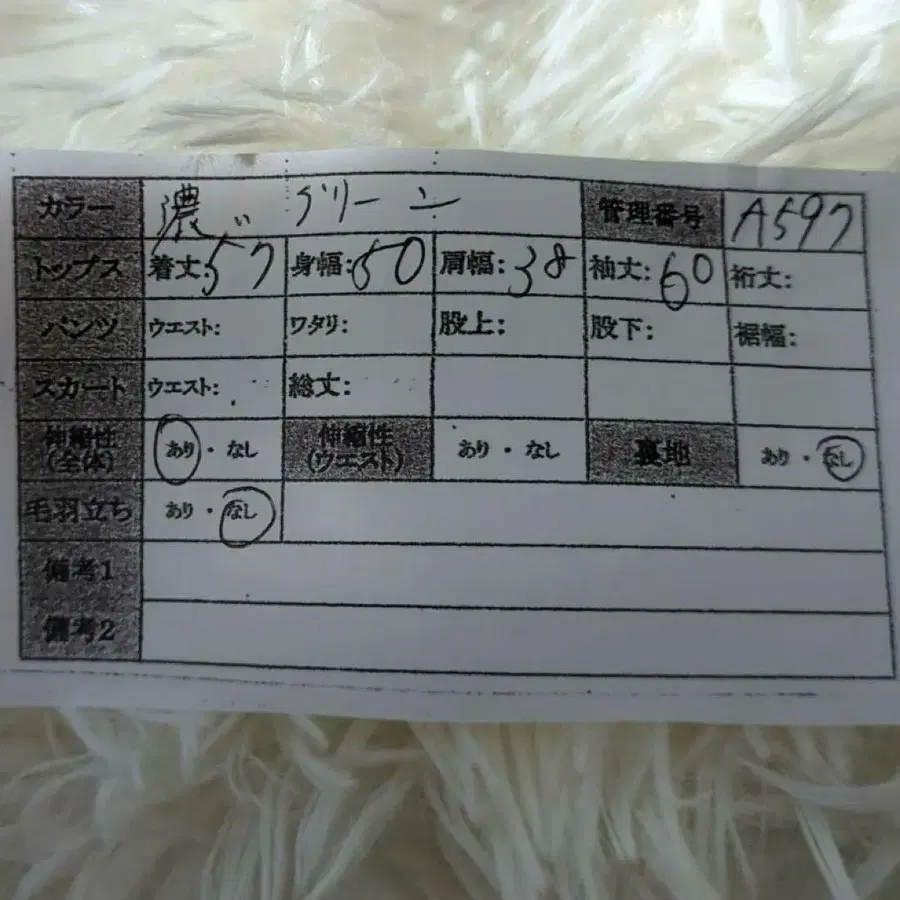 カラー 濃い グリーン 管理番号 A597
トップス 着丈:57 身幅:50 肩幅:38 袖丈:60 裄丈:
パンツ ウエスト: ワタリ: 股上: 股下: 裾幅:
スカート ウエスト: 総丈:
伸縮性(全体) あり・なし 伸縮性(ウエスト) あり・なし 裏地 あり・なし
毛羽立ち あり・なし
備考1
備考2